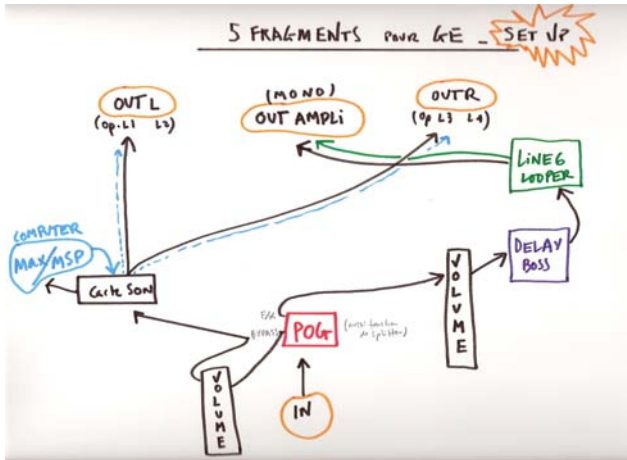 5 FRAGMENTS POUR GE _ SET UP
OUT L
(Op.L1 L2)
(MONO)
OUT AMPLi
OUTR
(Op L3 L4)
LiNE6
LOOPER
COMPUTER
MAX/MSP
Carte SON
DELAY
BOSS
VOLUME
F/X
BYPASS
POG
(aussi fonction
de splitter)
VOLUME
IN